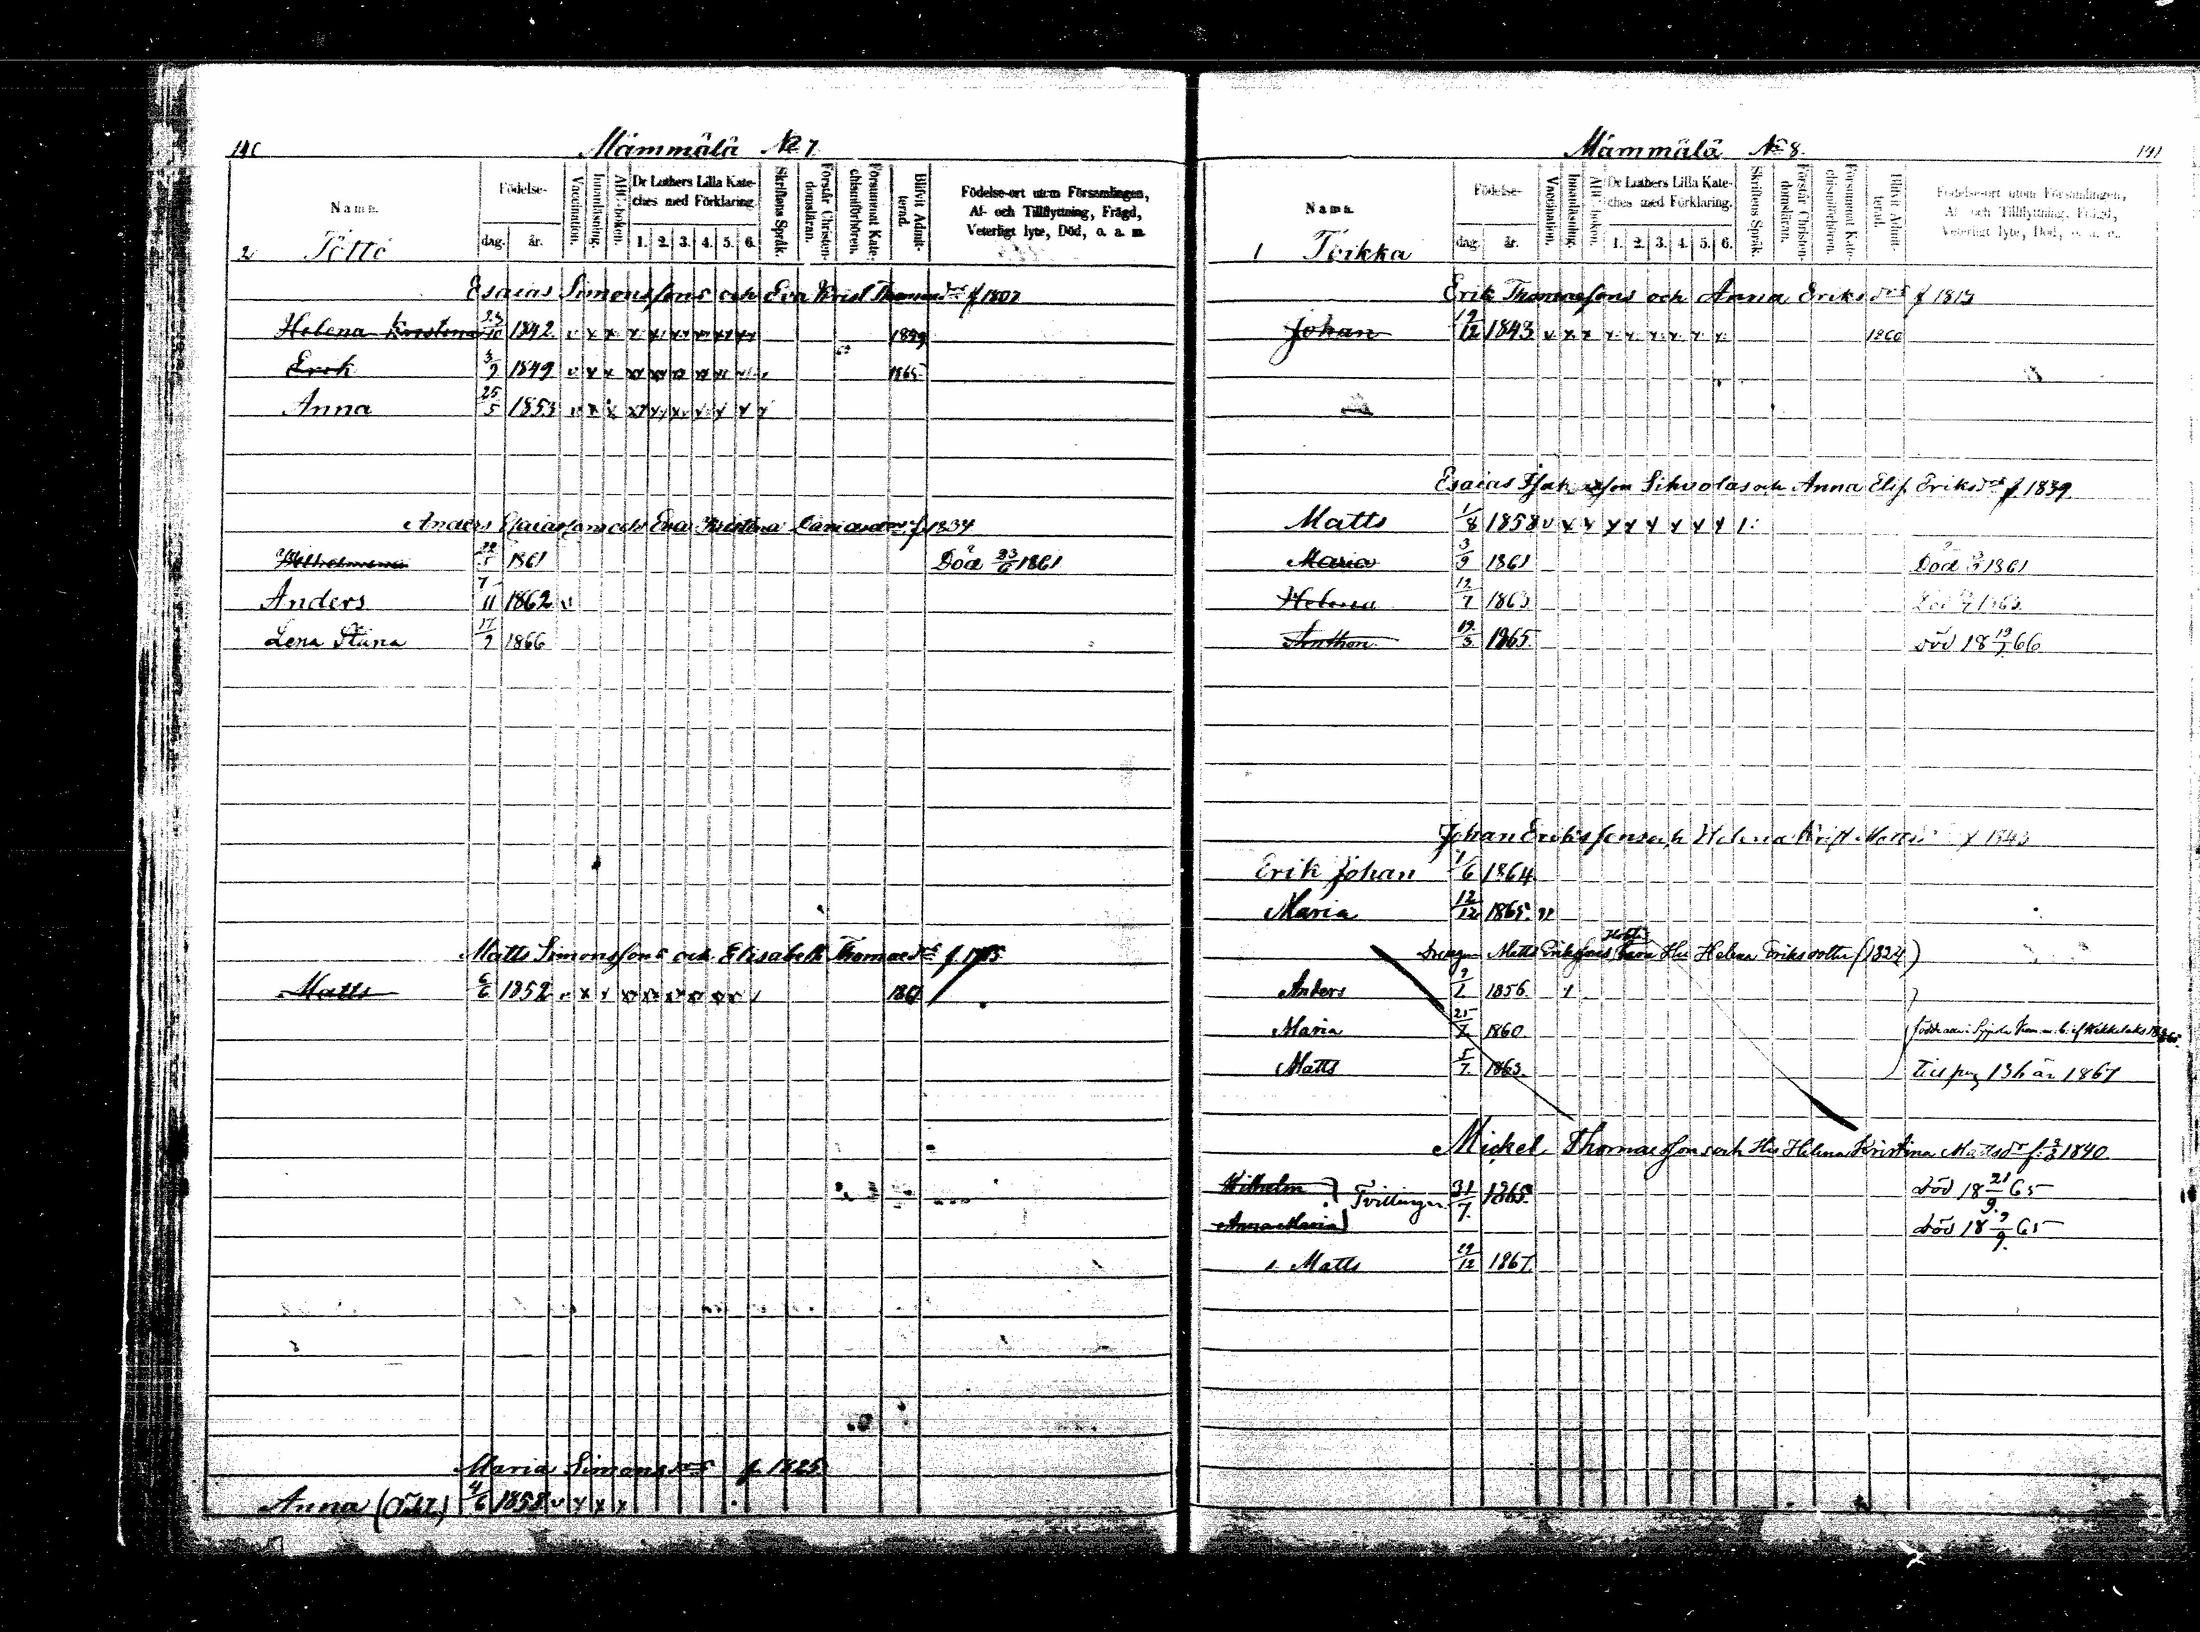 140
Mämmälä № 7.
Namn.
Födelse-
dag.
år.
Vaccination.
Innanläsning.
ABC-boken.
Dr Luthers Lilla Kate-
ches med Förklaring.
1. 2. 3. 4. 5. 6.
Skriftens Språk.
Förstår Christen-
domsläran.
Försummat Kate-
chismiförhören.
Blifvit Admit-
terad.
Födelse-ort utom Församlingen,
Af- och Tillflyttning, Frägd,
Veterligt lyte, Död, o. a. m.
2 Töttö
Esaias Simonssons och Eva Krist Thomasdr f 1807
Helena Kristina 23/10 1842 v x x x x x x x x 1859
Erik 3/9 1849 v x x xx xx xx xx 1865
Anna 25/5 1853 v x x xx xx xx x x x x
Anders Esaiassons och Eva Kristina f 1834
Wilhelmina 22/5 1861 Död 23/6 1861
Anders 7/11 1862 v
Lena Stina 17/9 1866
Matts Simonssons och Elisabeth Thomasdr
Matts 6/6 1852 v x x xx xx xx xx xx
Maria Simonsdr f. 1825
Anna (Oäkt.) 4/6 1858 v x x x
Mämmälä № 8.
141
Namn.
Födelse-
dag.
år.
Vaccination.
Innanläsning.
ABC-boken.
Dr Luthers Lilla Kate-
ches med Förklaring.
1. 2. 3. 4. 5. 6.
Skriftens Språk.
Förstår Christen-
domsläran.
Försummat Kate-
chismiförhören.
Blifvit Admit-
terad.
Födelse-ort utom Församlingen,
Af- och Tillflyttning, Frägd,
Veterligt lyte, Död, o. a. m.
1 Toikka
Erik Thomassons och Anna Eriksdr
Johan 19/12 1843 v x x x x x x x x 1860
Esaias Isaksson Sihvolas och Anna Elis. Eriksdr f 1839
Matts 1/8 1858 v x x x x x x x x
Maria 3/9 1861 Död 1861
Helena 12/7 1863 Död 1863
Anthon 19/3 1865. död 18 19/1 66
Johan Erikssons och Helena Krist Mattsdr f 1843
Erik Johan 1/6 1864
Maria 12/12 1865.
Drengen Matts Erikssons Hu Helena Eriksdotter (1824)
Anders 1856.
Maria 1860.
Matts 5/7 1863.
till pag 136 år 1867
Mickel Thomassons och Hu Helena Kristina Mattsdr f. 1840
Wilhelm } Tvillingar 31/7 1865. död 18 21/9 65
Anna Maria } död 18 9/9 65
Matts 29/12 1867.